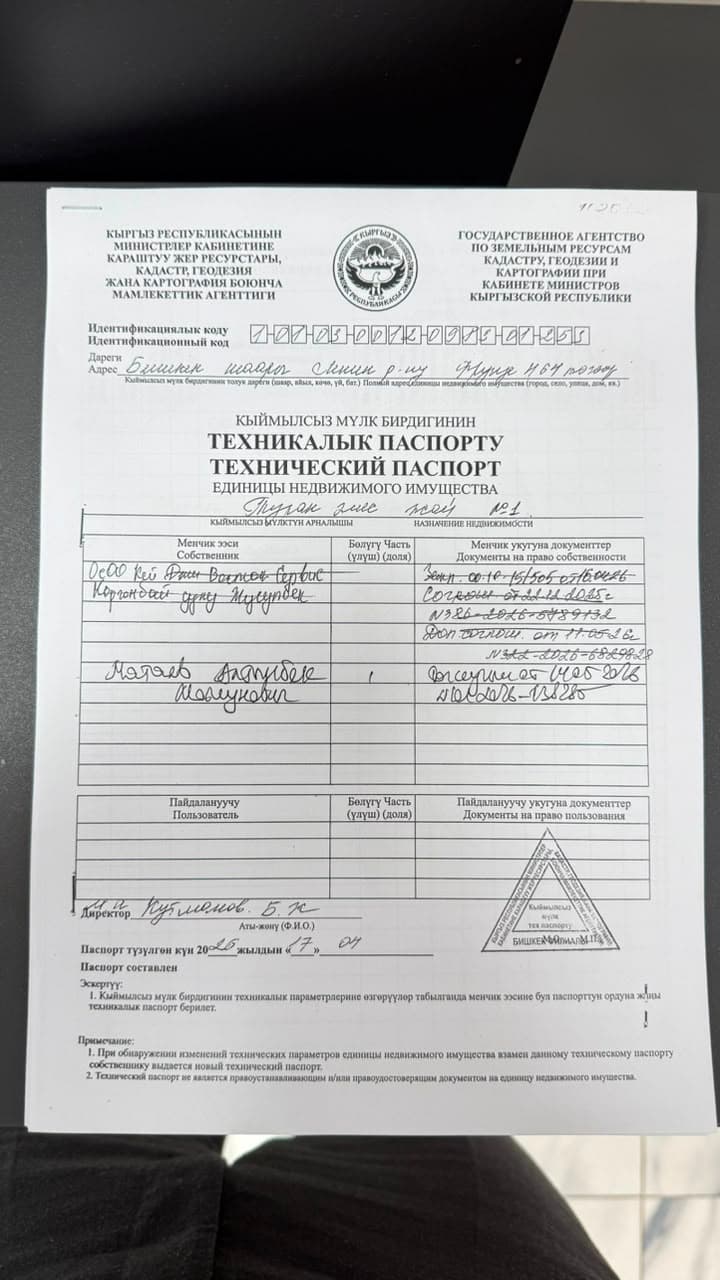 КЫРГЫЗ РЕСПУБЛИКАСЫНЫН
МИНИСТРЛЕР КАБИНЕТИНЕ
КАРАШТУУ ЖЕР РЕСУРСТАРЫ,
КАДАСТР, ГЕОДЕЗИЯ
ЖАНА КАРТОГРАФИЯ БОЮНЧА
МАМЛЕКЕТТИК АГЕНТТИГИ
ГОСУДАРСТВЕННОЕ АГЕНТСТВО
ПО ЗЕМЕЛЬНЫМ РЕСУРСАМ
КАДАСТРУ, ГЕОДЕЗИИ И
КАРТОГРАФИИ ПРИ
КАБИНЕТЕ МИНИСТРОВ
КЫРГЫЗСКОЙ РЕСПУБЛИКИ
Идентификациялык коду
Идентификационный код
Дареги
Адрес Бишкек шаары Ленин р-ну
Кыймылсыз мүлк бирдигинин толук дареги (шаар, айыл, көчө, үй, бат.) Полный адрес единицы недвижимого имущества (город, село, улица, дом, кв.)
КЫЙМЫЛСЫЗ МҮЛК БИРДИГИНИН
ТЕХНИКАЛЫК ПАСПОРТУ
ТЕХНИЧЕСКИЙ ПАСПОРТ
ЕДИНИЦЫ НЕДВИЖИМОГО ИМУЩЕСТВА
Турак эмес жай №1
КЫЙМЫЛСЫЗ МҮЛКТҮН АРНАЛЫШЫ НАЗНАЧЕНИЕ НЕДВИЖИМОСТИ
Менчик ээси
Собственник
Бөлүгү Часть
(үлүш) (доля)
Менчик укугуна документтер
Документы на право собственности
ОсОО Кей Джи Восток Сервис
Коргонбай уулу Жусупбек
Соглаш. от 22.12.2025г
Доп.соглаш. от 11.05.26г
№322-2026-6829828
Пайдалануучу
Пользователь
Бөлүгү Часть
(үлүш) (доля)
Пайдалануучу укугуна документтер
Документы на право пользования
Кыймылсыз
мүлк
тех паспорту
БИШКЕК ФИЛИАЛЫ
Директор
Аты-жөнү (Ф.И.О.)
М.О. М.П.
Паспорт түзүлгөн күн 2026 жылдын «17» 04
Паспорт составлен
Эскертүү:
1. Кыймылсыз мүлк бирдигинин техникалык параметрлерине өзгөрүүлөр табылганда менчик ээсине бул паспорттун ордуна жаңы
техникалык паспорт берилет.
Примечание:
1. При обнаружении изменений технических параметров единицы недвижимого имущества взамен данному техническому паспорту
собственнику выдается новый технический паспорт.
2. Технический паспорт не является правоустанавливающим и/или правоудостоверящим документом на единицу недвижимого имущества.